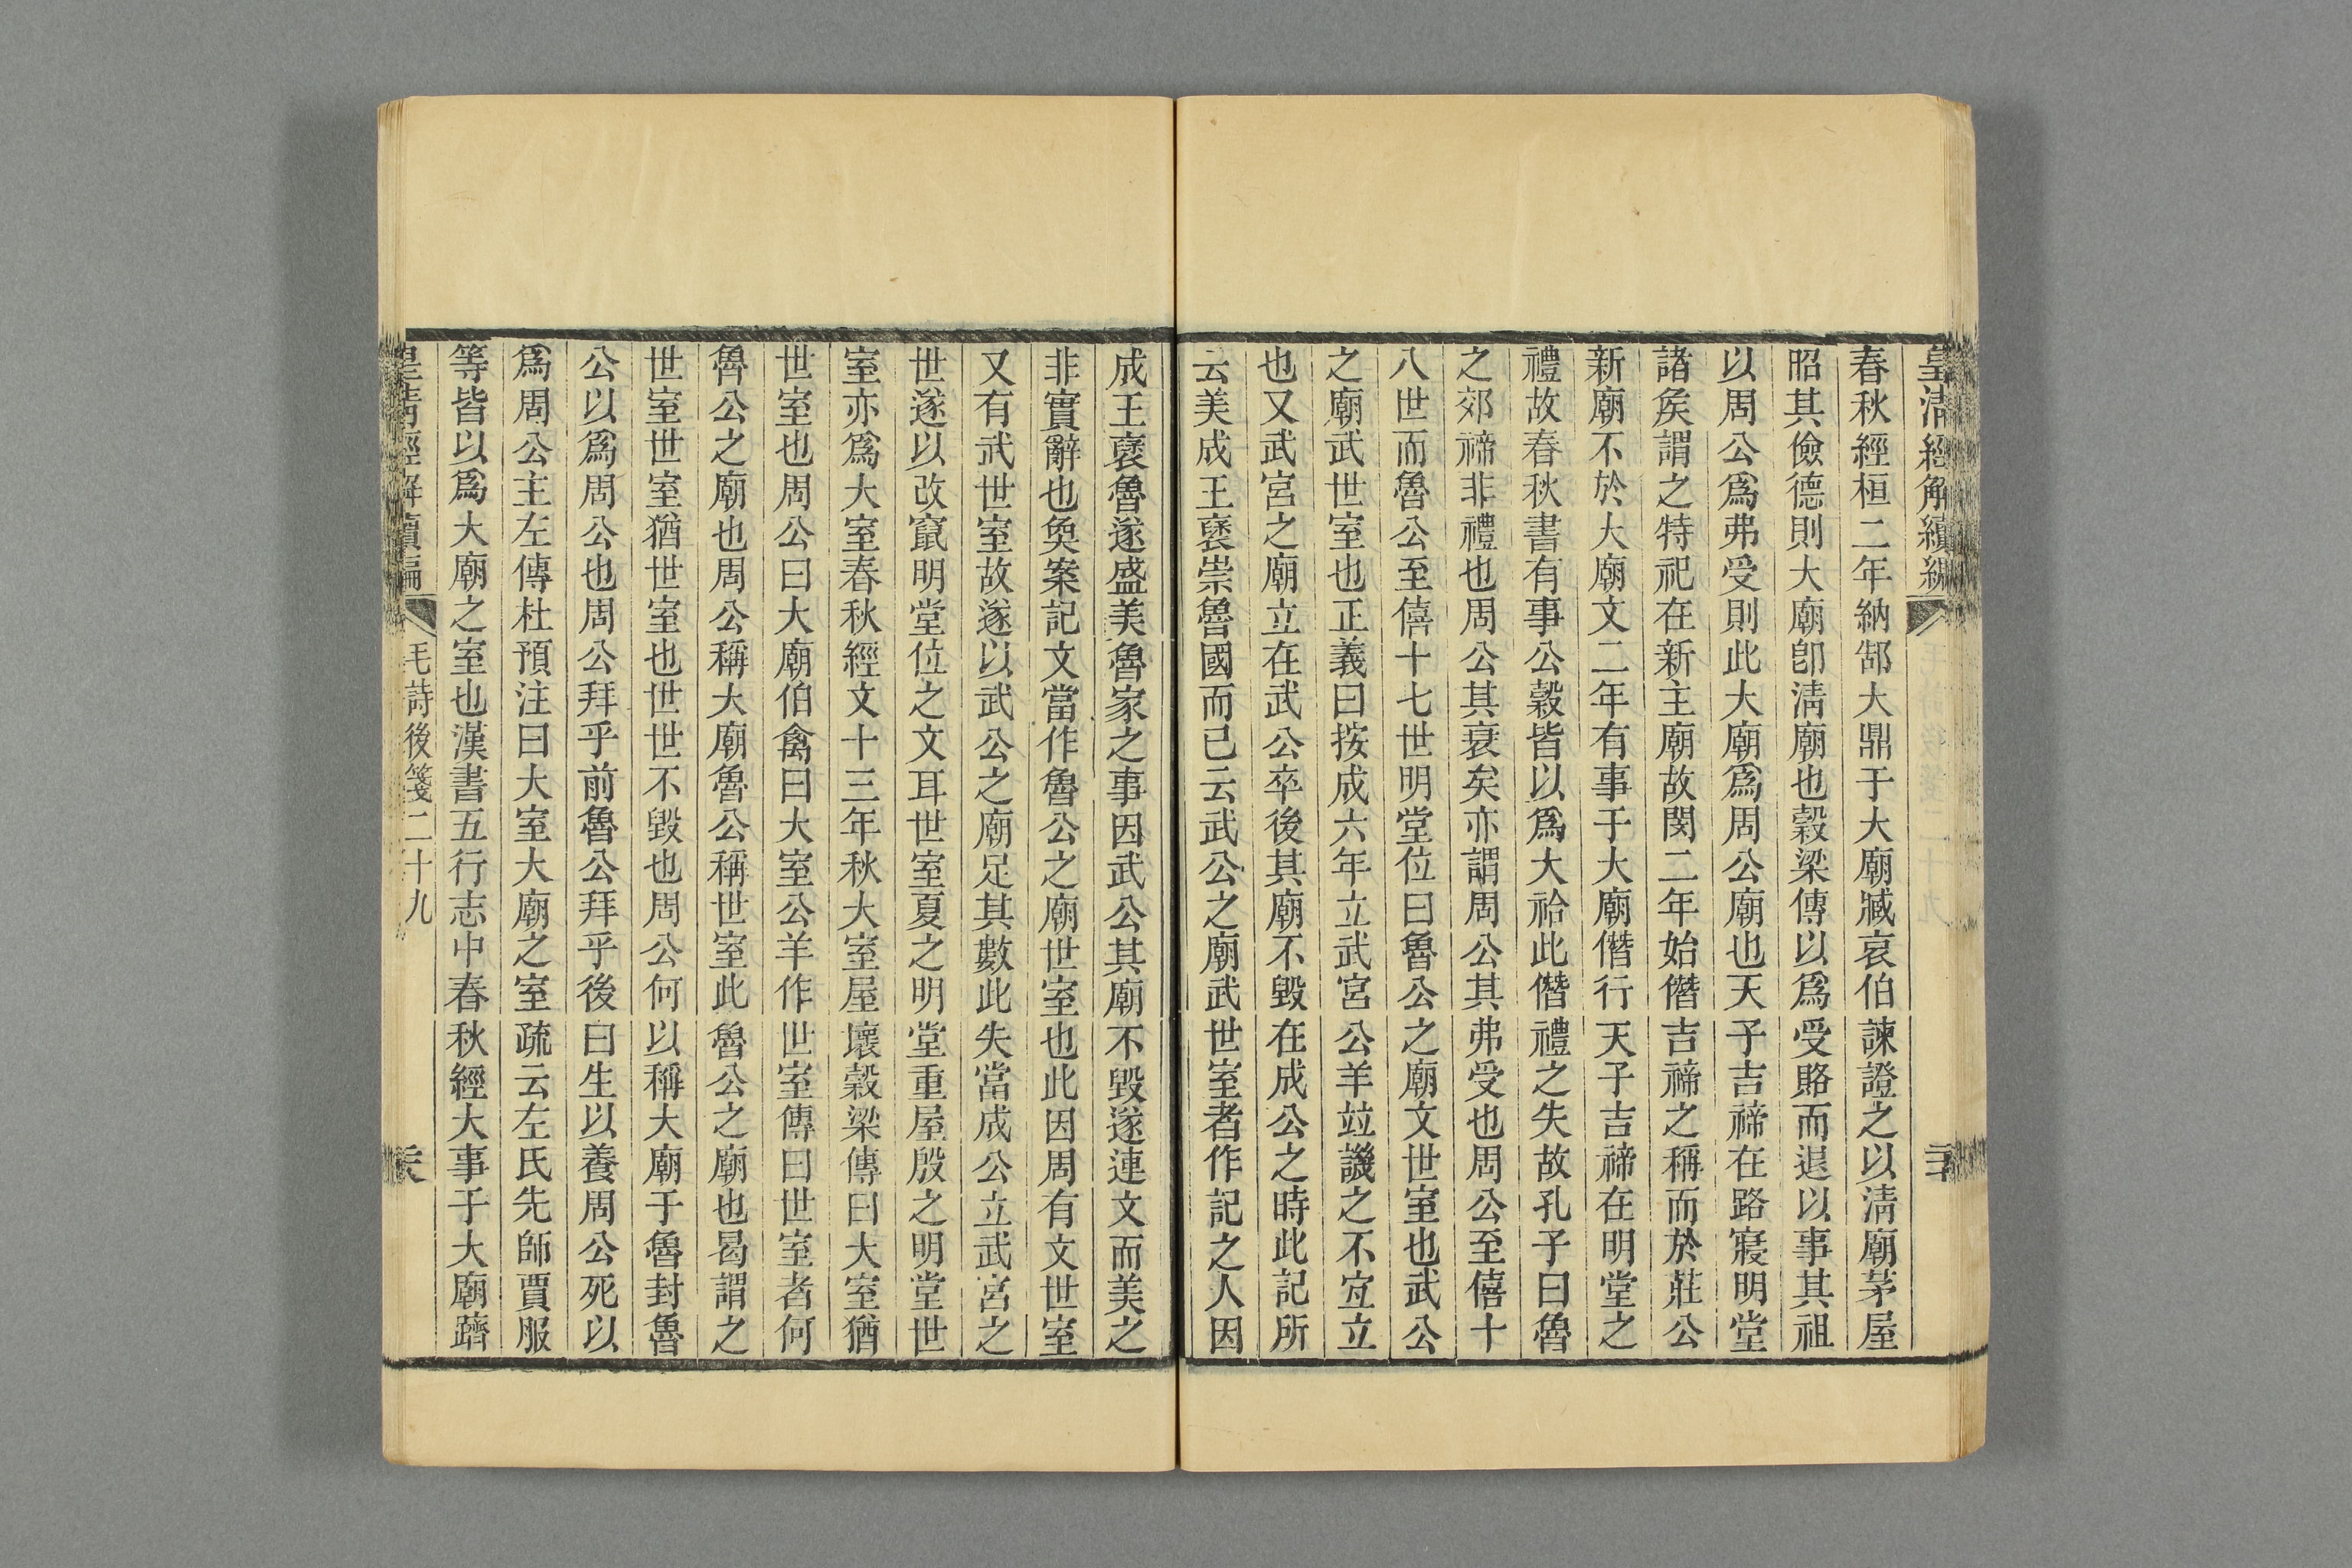 皇清經解續編
春秋經桓二年納郜大鼎于大廟臧哀伯諫證之以淸廟茅屋
昭其儉德則大廟卽淸廟也穀梁傳以爲受賂而退以事其祖
以周公爲弗受則此大廟爲周公廟也天子吉禘在路寢明堂
諸矦謂之特祀在新主廟故閔二年始僭吉禘之稱而於莊公
新廟不於大廟文二年有事于大廟僭行天子吉禘在明堂之
禮故春秋書有事公穀皆以爲大祫此僭禮之失故孔子曰魯
之郊禘非禮也周公其衰矣亦謂周公其弗受也周公至僖十
八世而魯公至僖十七世明堂位曰魯公之廟文世室也武公
之廟武世室也正義曰按成六年立武宮公羊竝譏之不宐立
也又武宮之廟立在武公卒後其廟不毀在成公之時此記所
云美成王襃崇魯國而已云武公之廟武世室者作記之人因
成王襃魯遂盛美魯家之事因武公其廟不毀遂連文而美之
非實辭也奐案記文當作魯公之廟世室也此因周有文世室
又有武世室故遂以武公之廟足其數此失當成公立武宮之
世遂以改竄明堂位之文耳世室夏之明堂重屋殷之明堂世
室亦爲大室春秋經文十三年秋大室屋壞穀梁傳曰大室猶
世室也周公曰大廟伯禽曰大室公羊作世室傳曰世室者何
魯公之廟也周公稱大廟魯公稱世室此魯公之廟也曷謂之
世室世室猶世室也世世不毀也周公何以稱大廟于魯封魯
公以爲周公也周公拜乎前魯公拜乎後曰生以養周公死以
爲周公主左傳杜預注曰大室大廟之室疏云左氏先師賈服
等皆以爲大廟之室也漢書五行志中春秋經大事于大廟躋
皇淸經解續編
毛詩後箋二十九